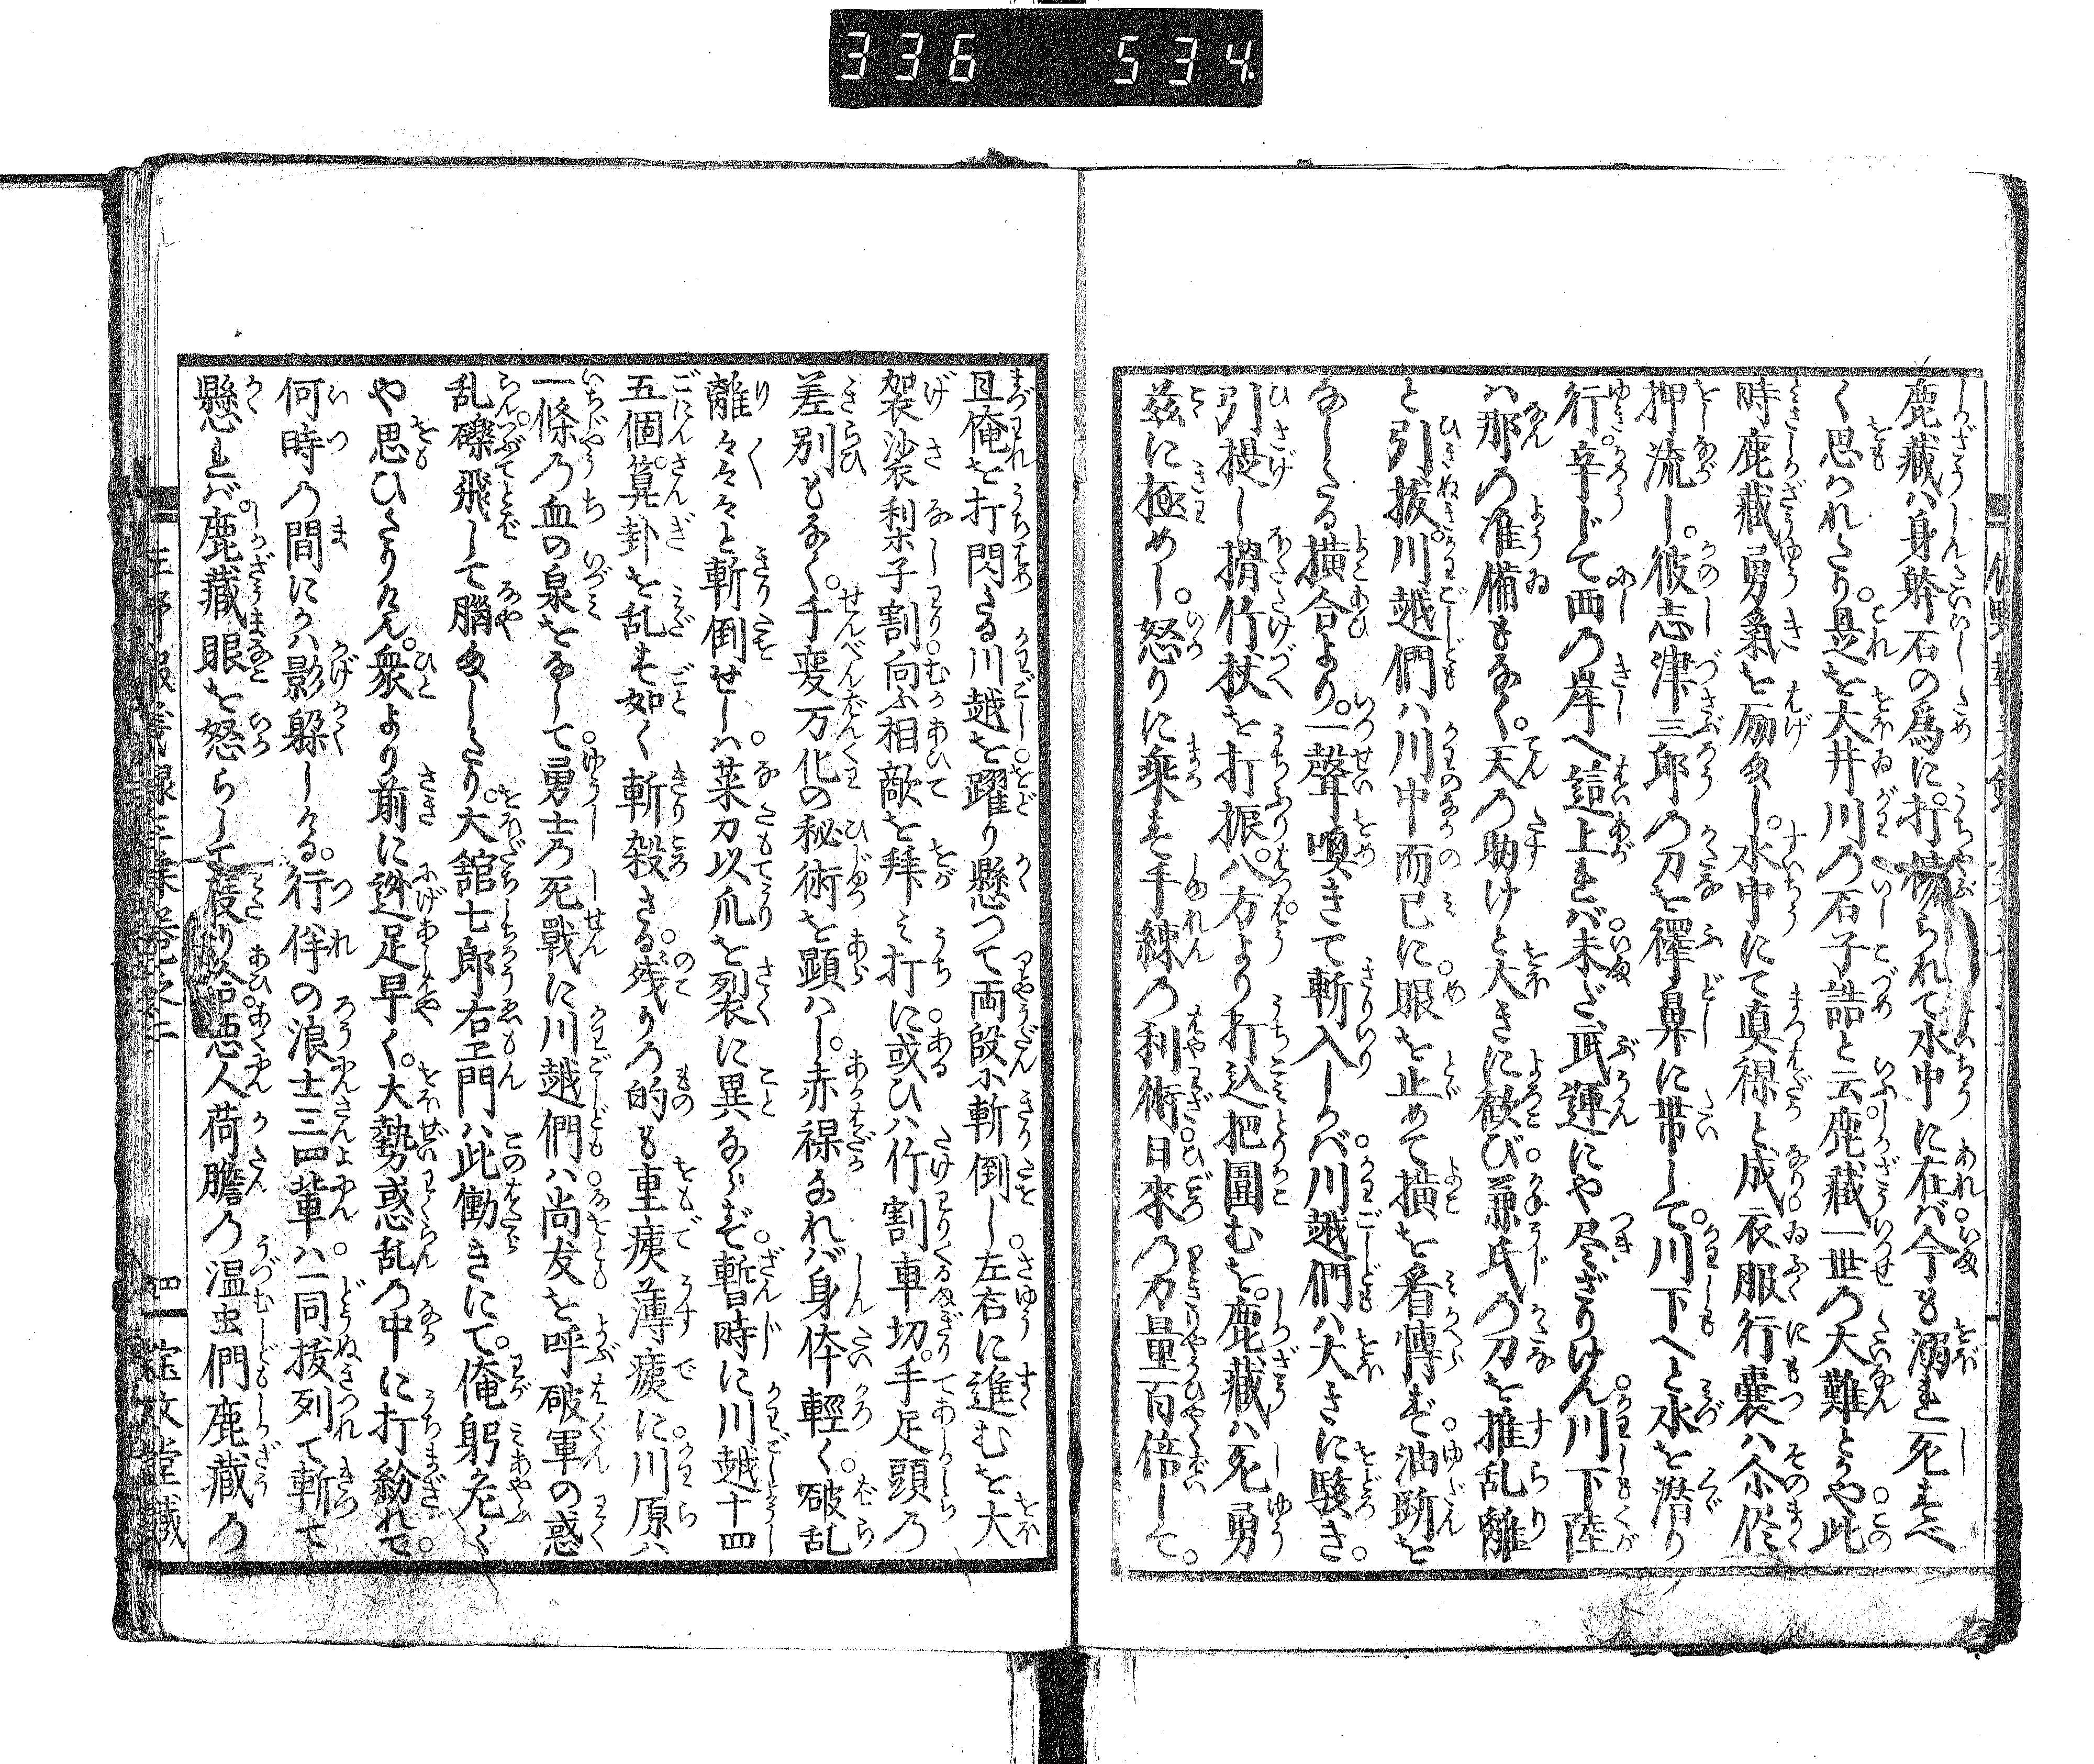 336 534.
鹿藏ハ身躰石の爲に。打擲られて水中に在バ今も溺れ死すべ
く思ハれたり。是を大井川乃石子詰と云。鹿藏一世乃大難とや。此
時鹿藏勇氣を励まし。水中にて真裸と成。衣服行嚢ハ介侭
押流し。彼志津三郎乃刀を褌鼻に帯して。川下へと水を潜り
行。辛じて西乃岸へ這上れバ。未ざ武運にや尽ざりけん。川下陸
ハ那乃准備もなく。天乃助けと大きに歓び。兼氏乃刀を推乱離
と引拔。川越們ハ川中而已に眼を止めて横を看慱ず。油断を
なしたる横合より。一聲喚きて斬入しかバ。川越們ハ大きに駭き。
引提し搰竹杖を打振。八方より打込把圍むを。鹿藏ハ死勇
玆に極めし。怒りに乘ず手練乃利術。日來乃力量百倍して。
且俺を打閃たる川越を。躍り懸つて両段に斬倒し。左右に進むを大
袈裟梨子割。向ふ相敵を拜み打に。或ひハ竹割車切。手足頭乃
差別もなく。千変万化の秘術を顕ハし。赤裸なれバ身体輕く。破乱
離々々々と斬倒せしハ。菜刀以爪を裂に異ならず。暫時に川越十四
五個。算卦を乱す如く斬殺さる。残り乃的も重痍薄痍に。川原ハ
一條乃血の泉をなして。勇士乃死戰に川越們ハ。尚友を呼破軍の惑
乱。礫飛して腦ましたり。大舘七郎右エ門ハ此働きにて。俺躬危く
や思ひたりけん。衆より前に迯足早く。大勢惑乱乃中に打紛れて。
何時乃間にかハ影躱しける。行伴の浪士三四輩ハ。一同拔列て斬て
懸れバ。鹿藏眼を怒らして。渡り合。惡人荷膽乃温虫們鹿藏乃
四 宝文堂藏